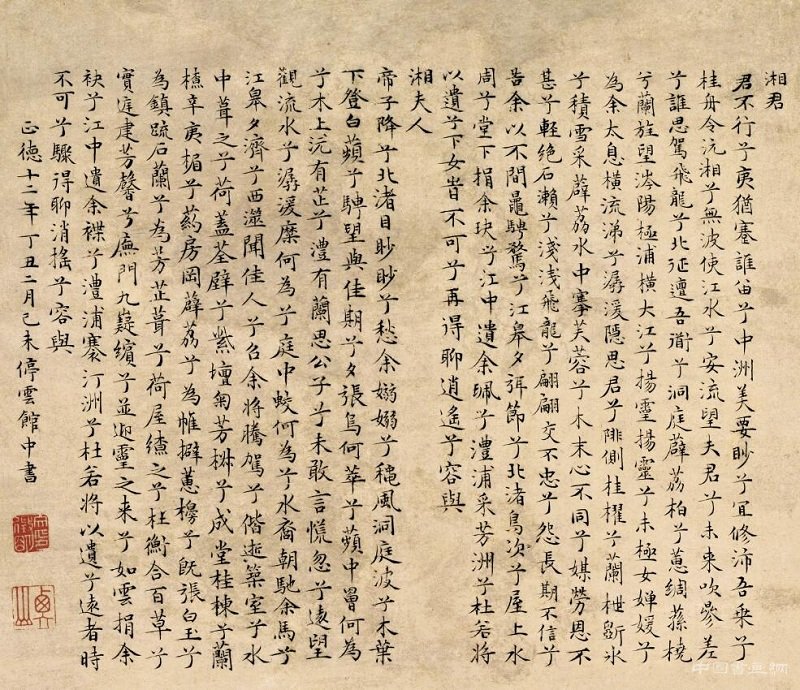 湘君
君不行兮夷猶蹇誰留兮中洲美要眇兮宜修沛吾乗兮
桂舟令沅湘兮無波使江水兮安流望夫君兮未来吹參差
兮誰思駕飛龍兮北征邅吾道兮洞庭薜荔柏兮蕙綢蓀橈
兮蘭旌望涔陽極浦橫大江兮揚靈揚靈兮未極女嬋媛兮
為余太息橫流涕兮潺湲隱思君兮陫側桂櫂兮蘭枻斲氷
兮積雪采薜荔水中搴芙蓉兮木末心不同兮媒勞恩不
甚兮輕絕石瀨兮淺淺飛龍兮翩翩交不忠兮怨長期不信兮
告余以不間鼂騁騖兮江皋夕弭節兮北渚鳥次兮屋上水
周兮堂下捐余玦兮江中遺余珮兮澧浦采芳洲兮杜若將
以遺兮下女旹不可兮再得聊逍遙兮容與
湘夫人
帝子降兮北渚目眇眇兮愁余嫋嫋兮穐風洞庭波兮木葉
下登白蘋兮騁望與佳期兮夕張鳥何萃兮蘋中罾何為
兮木上沅有芷兮澧有蘭思公子兮未敢言慌忽兮遠望
觀流水兮潺湲麋何為兮庭中蛟何為兮水裔朝馳余馬兮
江皋夕濟兮西澨聞佳人兮召余將騰駕兮偕逝築室兮水
中葺之兮荷蓋荃壁兮紫壇匊芳椒兮成堂桂棟兮蘭
橑辛夷楣兮葯房罔薜荔兮為帷擗蕙櫋兮既張白玉兮
為鎮疏石蘭兮為芳芷葺兮荷屋繚之兮杜衡合百草兮
實庭建芳馨兮廡門九嶷繽兮並迎靈之来兮如雲捐余
袂兮江中遺余褋兮澧浦搴汀洲兮杜若將以遺兮遠者時
不可兮驟得聊消搖兮容與
正德十二年丁丑二月己未停雲館中書
中国書畫网